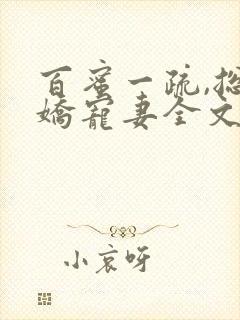 百蜜一疏,总
娇宠妻全文
小哀呀